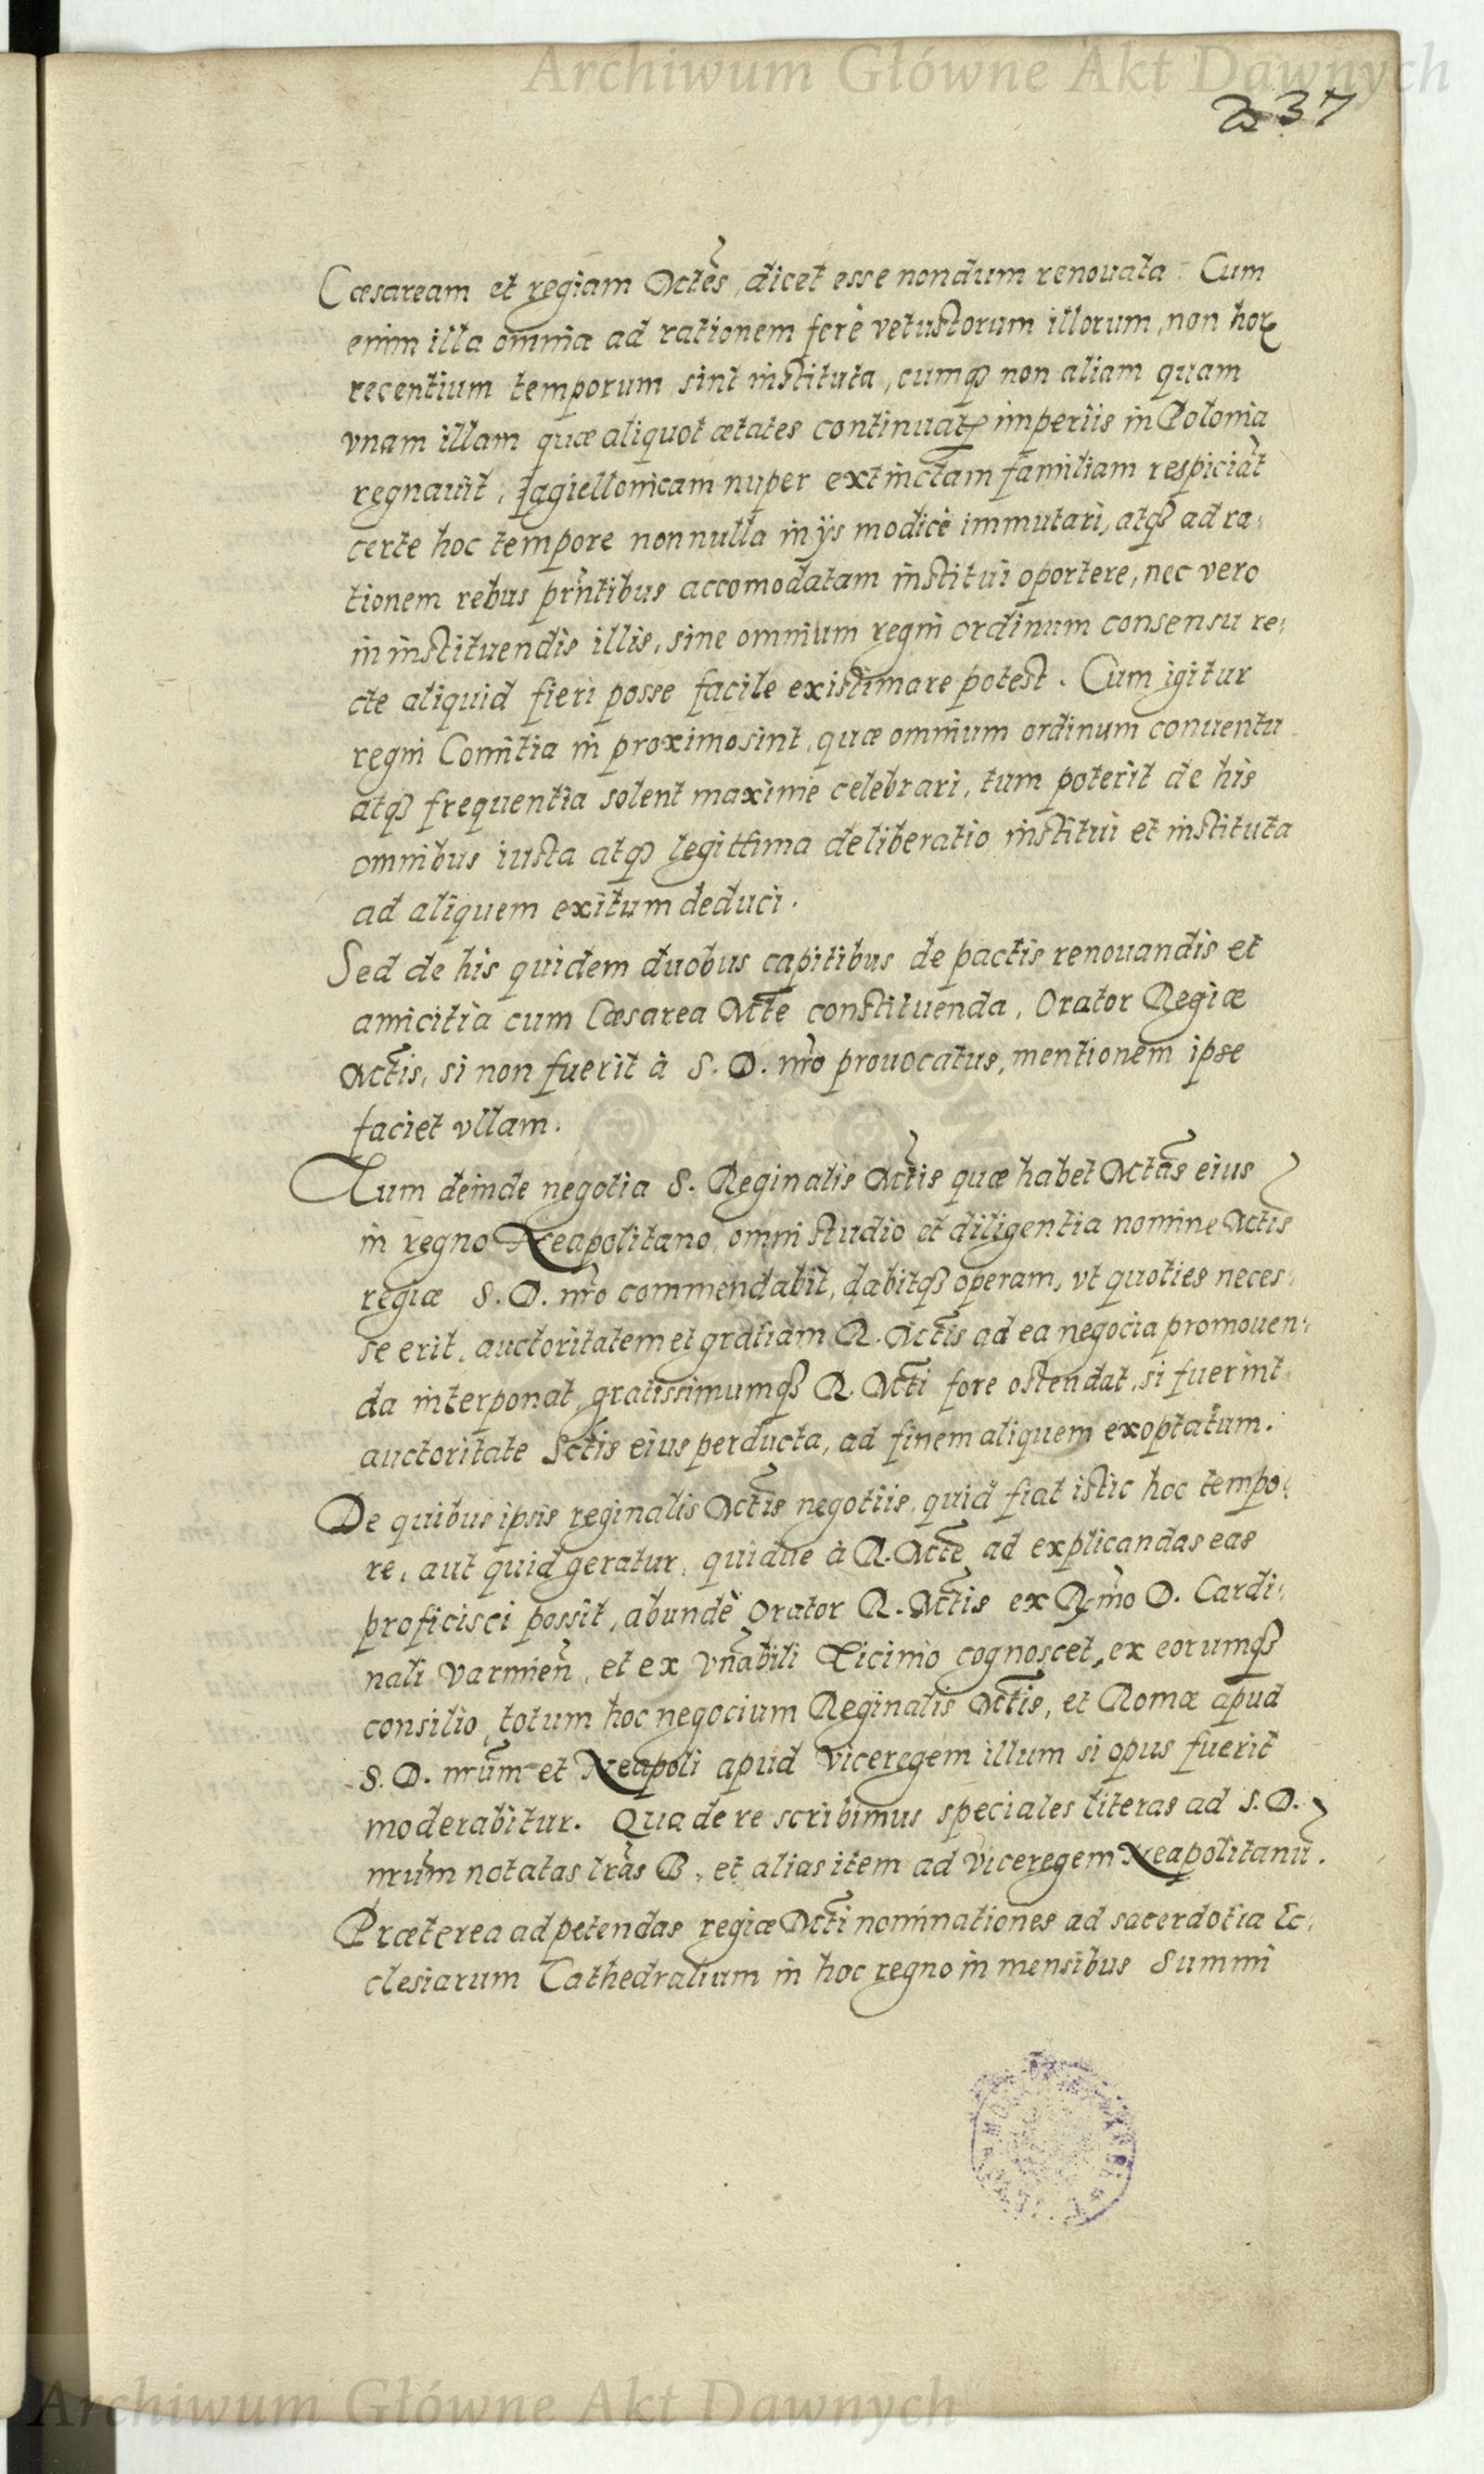 Archiwum Główne Akt Dawnych
237
Cæsaream et regiam Mctẽs, dicet esse nondum renouata. Cum
enim illa omnia ad rationem ferè vetustorum illorum, non hoꝝ
recentium temporum sint instituta, cumqꝫ non aliam quam
vnam illam quæ aliquot ætates continuatꝭ imperiis in Polonia
regnauit, Jagiellonicam nuper extinctam familiam respiciãt
certe hoc tempore nonnulla in ijs modicè immutari, atqꝫ ad ra-
tionem rebus pr̃ntibus accomodatam institui oportere, nec vero
in instituendis illis, sine omnium regni ordinum consensu re-
cte aliquid fieri posse facile existimare potest. Cum igitur
regni Comitia in proximo sint, quæ omnium ordinum conuentu
atqꝫ frequentia solent maxime celebrari, tum poterit de his
omnibus iusta atqꝫ legittima deliberatio institui et instituta
ad aliquem exitum deduci.
Sed de his quidem duobus capitibus de pactis renouandis et
amicitia cum Cæsarea Mc̃te constituenda, Orator Regiæ
Mc̃tis, si non fuerit à S. D. nr̃o prouocatus, mentionem ipse
faciet vllam.
Tum deinde negotia S. Reginalis Mc̃tis quæ habet Mctãs eius
in regno Neapolitano, omni studio et diligentia nomine Mc̃tis
regiæ S. D. nr̃o commendabit, dabitqꝫ operam, vt quoties neces-
se erit, auctoritatem et gratiam R. Mc̃tis ad ea negocia promouen-
da interponat, gratissimumqꝫ R. Mc̃ti fore ostendat, si fuerint
auctoritate Sc̃tis eius perducta, ad finem aliquem exoptatum.
De quibus ipsis reginalis Mc̃tis negotiis, quid fiat istic hoc tempo-
re, aut quid geratur, quidue à R. Mc̃te ad explicandas eas
proficisci possit, abundè Orator R. Mc̃tis ex R̃mo D. Cardi-
nali Varmieñ, et ex Vñabili Ticinio cognoscet, ex eorumqꝫ
consilio, totum hoc negocium Reginalis Mc̃tis, et Romæ apud
S. D. nr̃um et Neapoli apud Viceregem illum si opus fuerit
moderabitur. Qua de re scribimus speciales literas ad S. D.
nr̃um notatas lr̃as B. et alias item ad Viceregem Neapolitanũ.
Præterea ad petendas regiæ Mc̃ti nominationes ad sacerdotia Ec-
clesiarum Cathedralium in hoc regno in mensibus Summi
Archiwum Główne Akt Dawnych